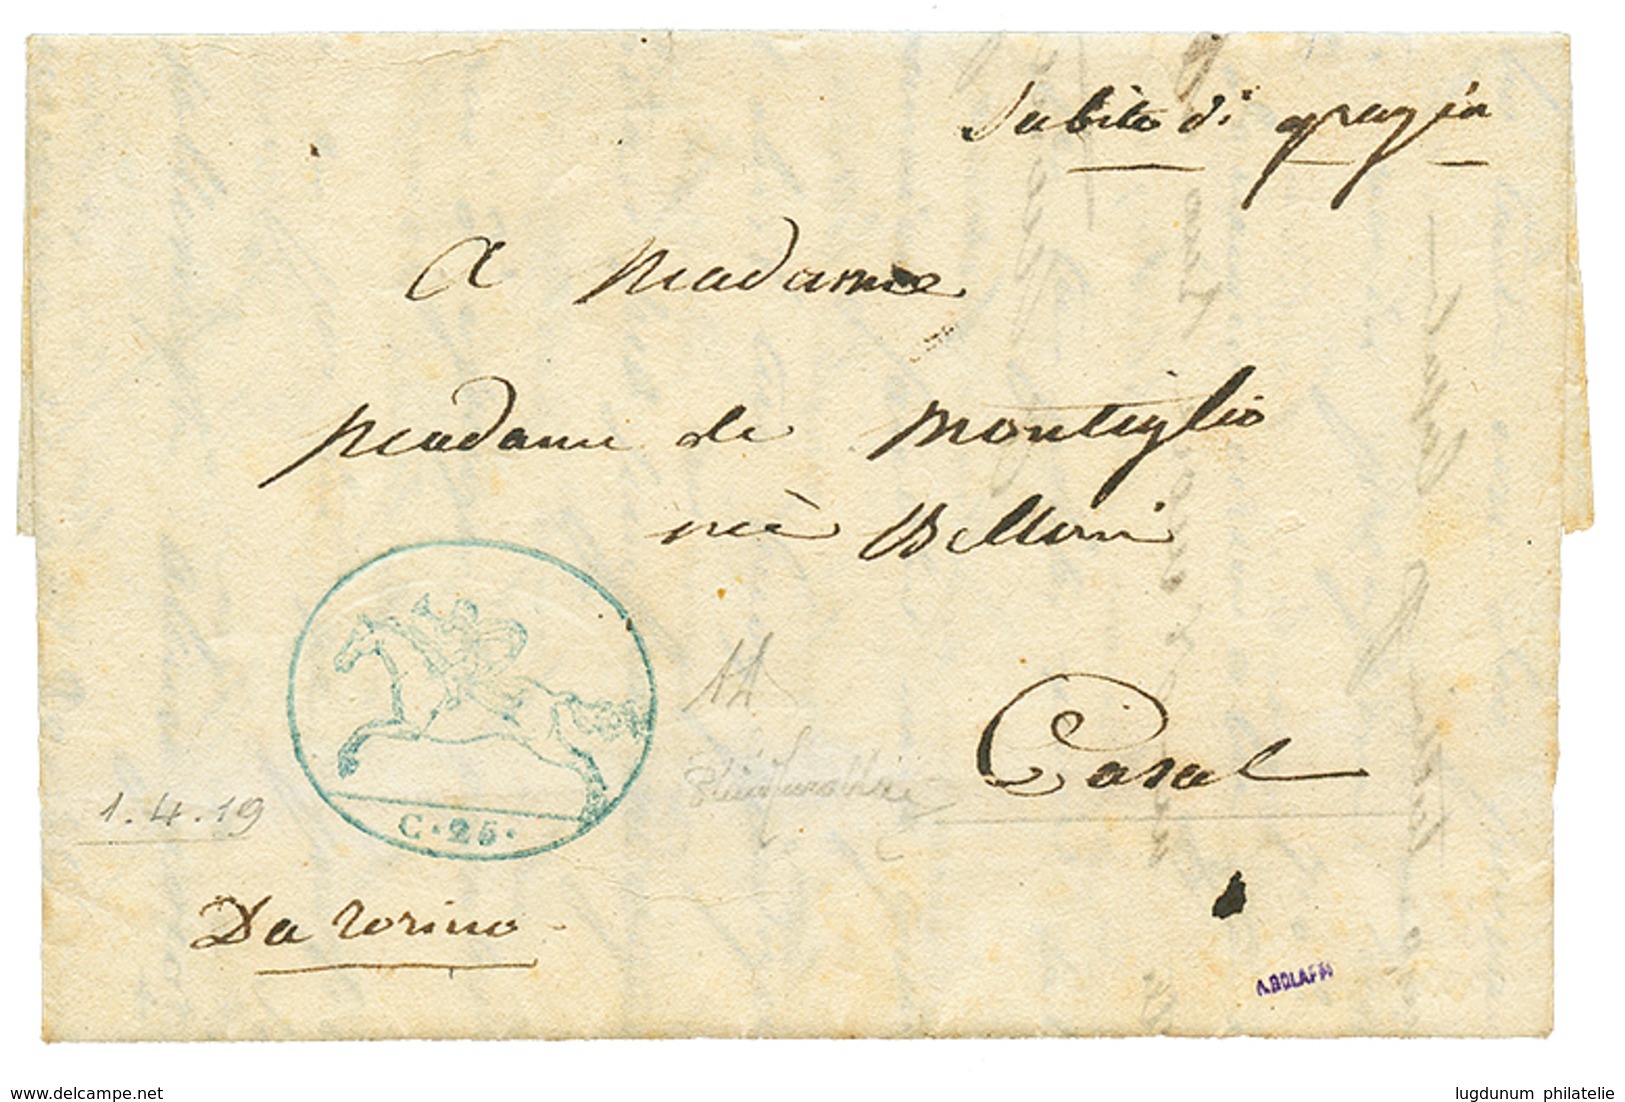 Subito di grazia
A Madame
Madame de Montiglio
neè Belloni
Casal
1.4.19
C·25·
Da Torino
A.BOLAFFI
www.delcampe.net
lugdunum philatelie